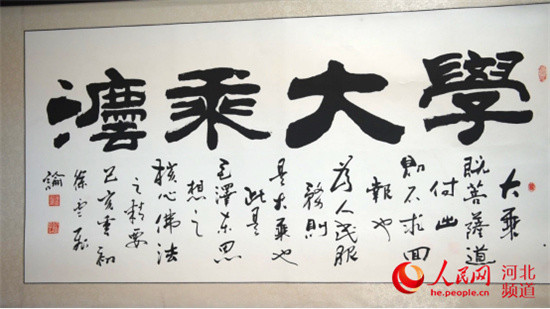 學大乘灋
大乘
既菩薩道
付出
則不求回
報也
為人民服
務則
是大乘也
此是
毛澤东思
想之
核心佛法
之精要
己亥
徐雲
人民网 河北
he.people.cn 频道